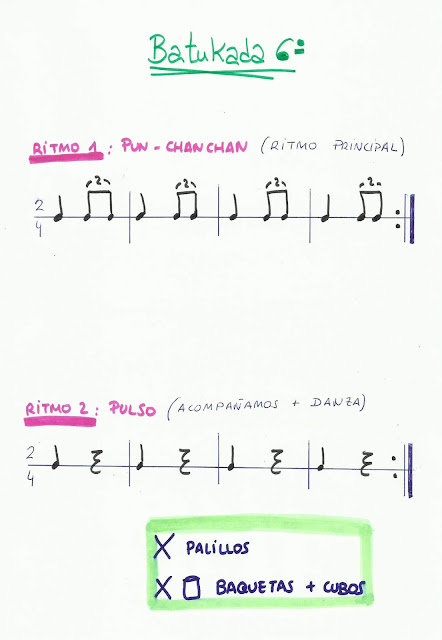 Batukada 6º
RITMO 1: PUN - CHANCHAN (RITMO PRINCIPAL)
2 2 2 2
2
4
RITMO 2: PULSO (ACOMPAÑAMOS + DANZA)
2
4
X PALILLOS
X BAQUETAS + CUBOS